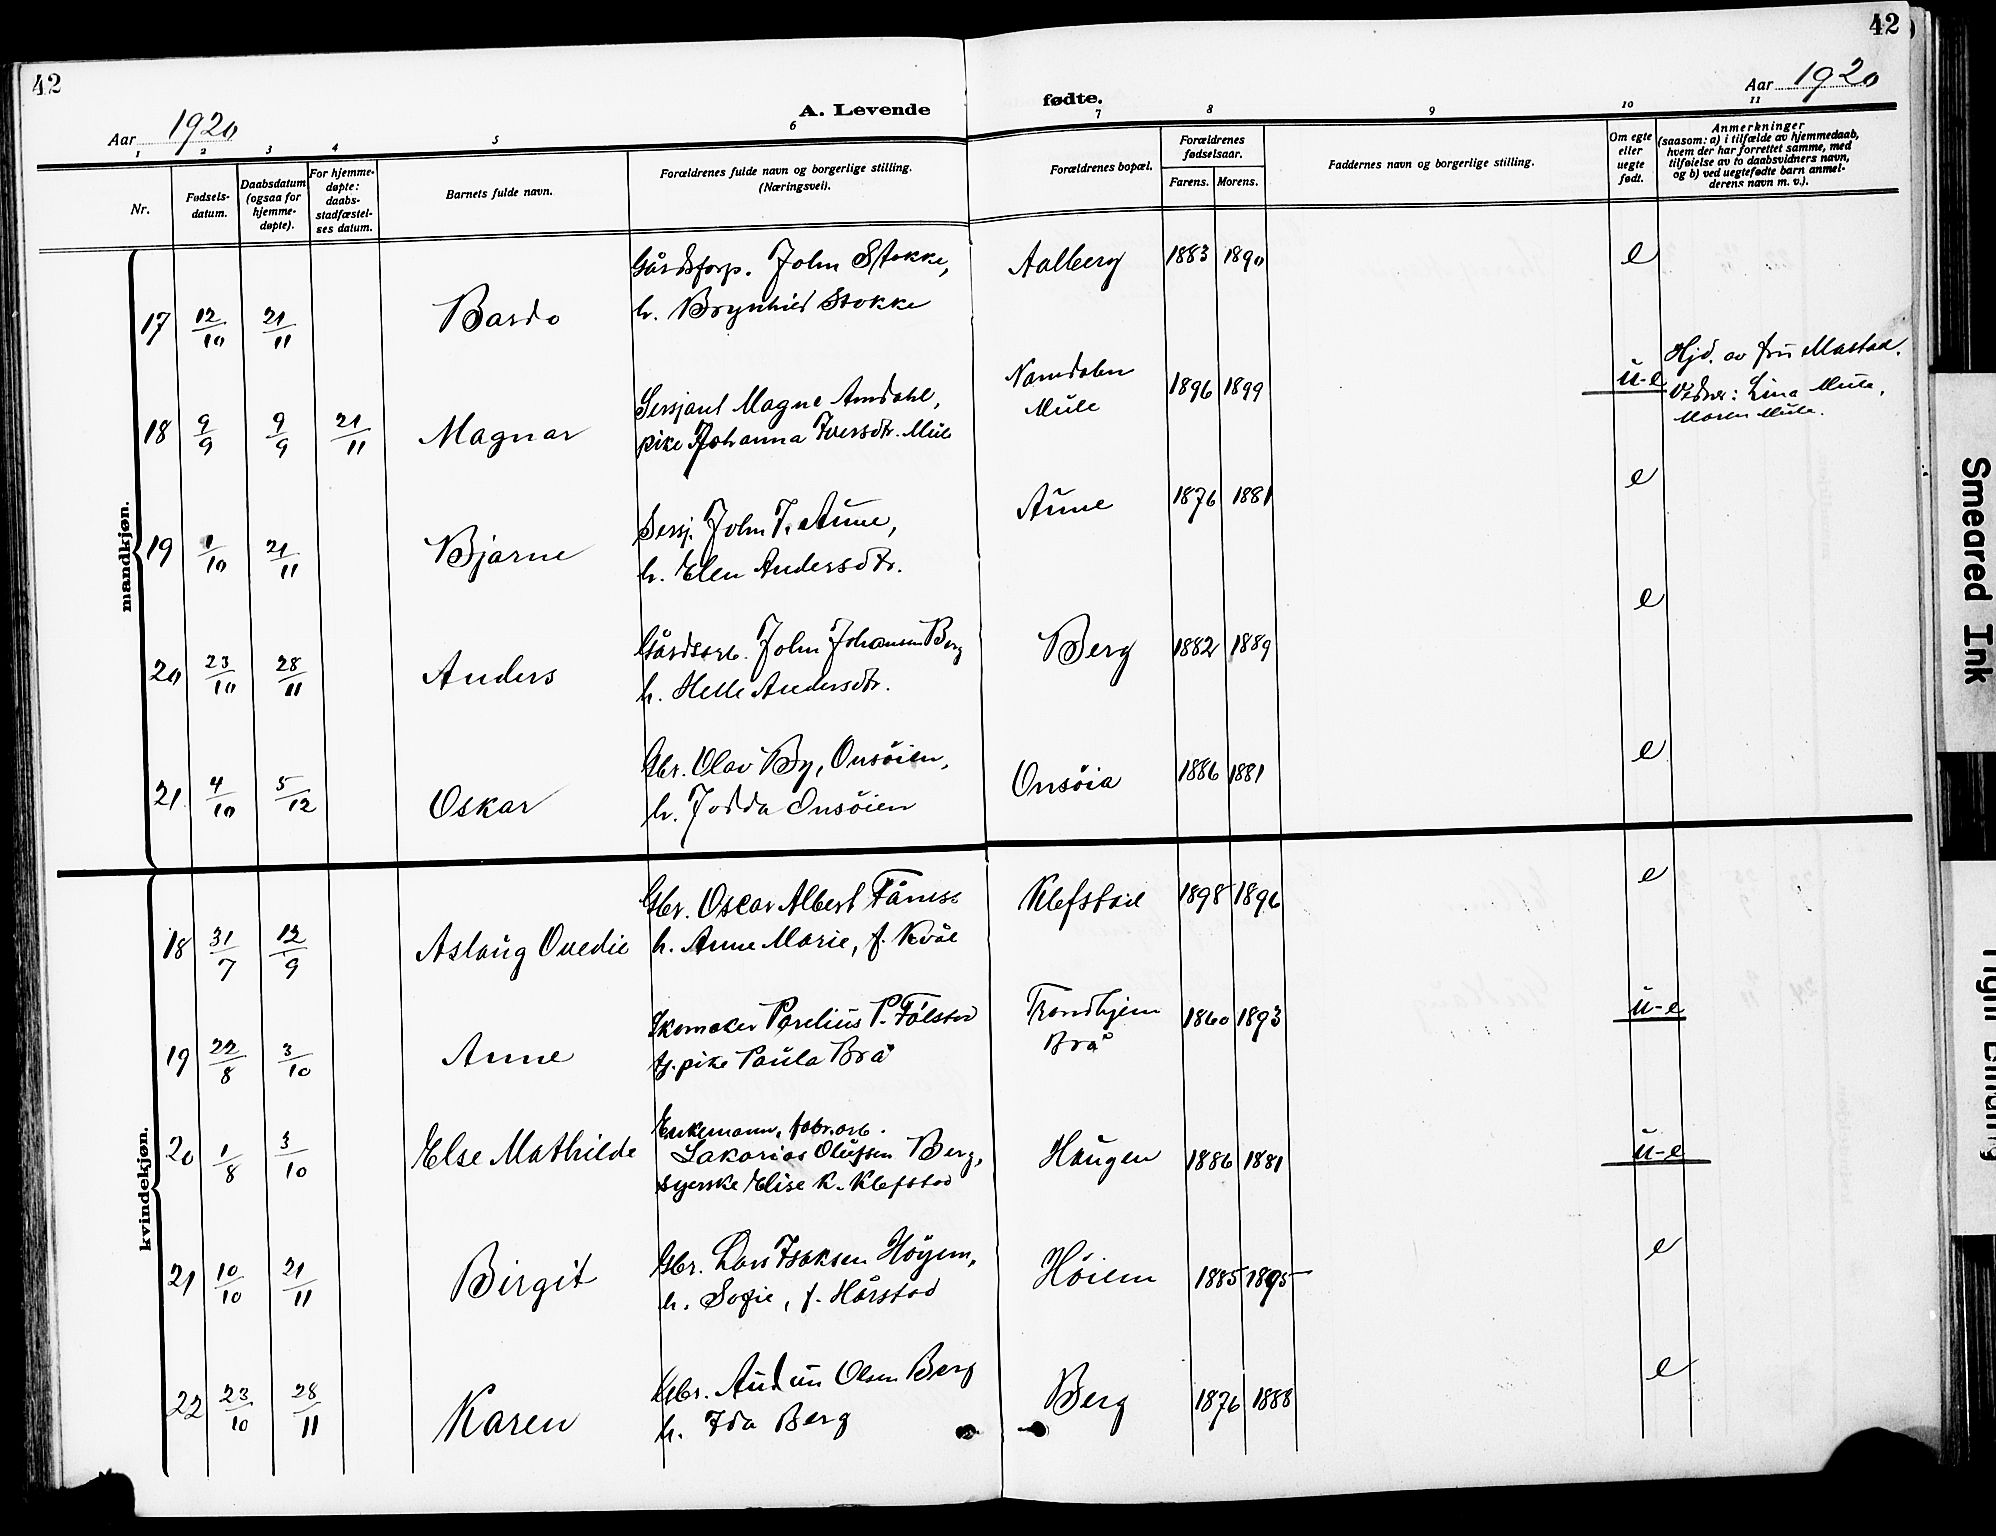 42
42
Aar 1920
A. Levende
fødte.
Aar 1920
1 2 3 4 5 6 7 8 9 10 11
Nr.
Fødsels-
datum.
Daabsdatum
(ogsaa for
hjemme-
døpte).
For hjemme-
døpte:
daabs-
stadfæstel-
ses datum.
Barnets fulde navn.
Forældrenes fulde navn og borgerlige stilling.
(Næringsvei).
Forældrenes bopæl.
Forældrenes
fødselsaar.
Farens. Morens.
Faddernes navn og borgerlige stilling.
Om egte
eller
uegte
født.
Anmerkninger
(saasom: a) i tilfælde av hjemmedaab,
hvem der har forrettet samme, med
tilføielse av to daabsvidners navn,
og b) ved uegtefødte barn anmel-
derens navn m. v.).
mandkjøn.
Gårdsforp. John Stokke, Aalberg 1883 1890 e
17 12/10 21/11 Bardo h. Brynhild Stokke
Hjd. av fru Mastad.
Sersjant Magne Amdahl, Namdalen 1896 1899 u-e
Mule Vidner: Lina Mule,
18 9/9 9/9 21/11 Magnar pike Johanna Iversdtr. Mule Maren Mule.
Sersj. John T. Aune, Aune 1876 1881 e
19 1/10 21/11 Bjarne h. Elen Andersdtr.
Gårdsarb. John Johansen Berg Berg 1882 1889 e
20 23/10 28/11 Anders h. Helle Andersdtr.
Gbr. Olav By, Onsöien, Onsöia 1886 1881 e
21 4/10 5/12 Oskar h. Jodda Onsöien
kvindekjøn.
Gbr. Oscar Albert Klefstad 1898 1896 e
18 31/7 12/9 Aslaug Ovedie h. Anne Marie, f. Kvål
Skomaker Parelius P. Fölstad Trondhjem 1860 1893 u-e
19 22/8 3/10 Anne pike Paula Brå Brå
Enkemann, fabr.arb.
20 1/8 3/10 Else Mathilde Sakarias Olufsen Berg, Haugen 1886 1881 u-e
syerske Elise K. Klefstad
Gbr. Lars Isaksen Höyem, Höiem 1885 1895 e
21 10/10 21/11 Birgit h. Sofie, f. Hårstad
Gbr. Audun Olsen Berg Berg 1876 1888 e
22 23/10 28/11 Karen h. Ida Berg
Smeared Ink